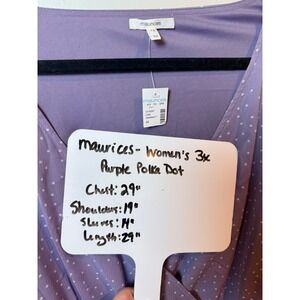 maurices
maurices
maurices - Women's 3x
Purple Polka Dot
Chest: 29"
Shoulders: 19"
Sleeves: 14"
Length: 29"